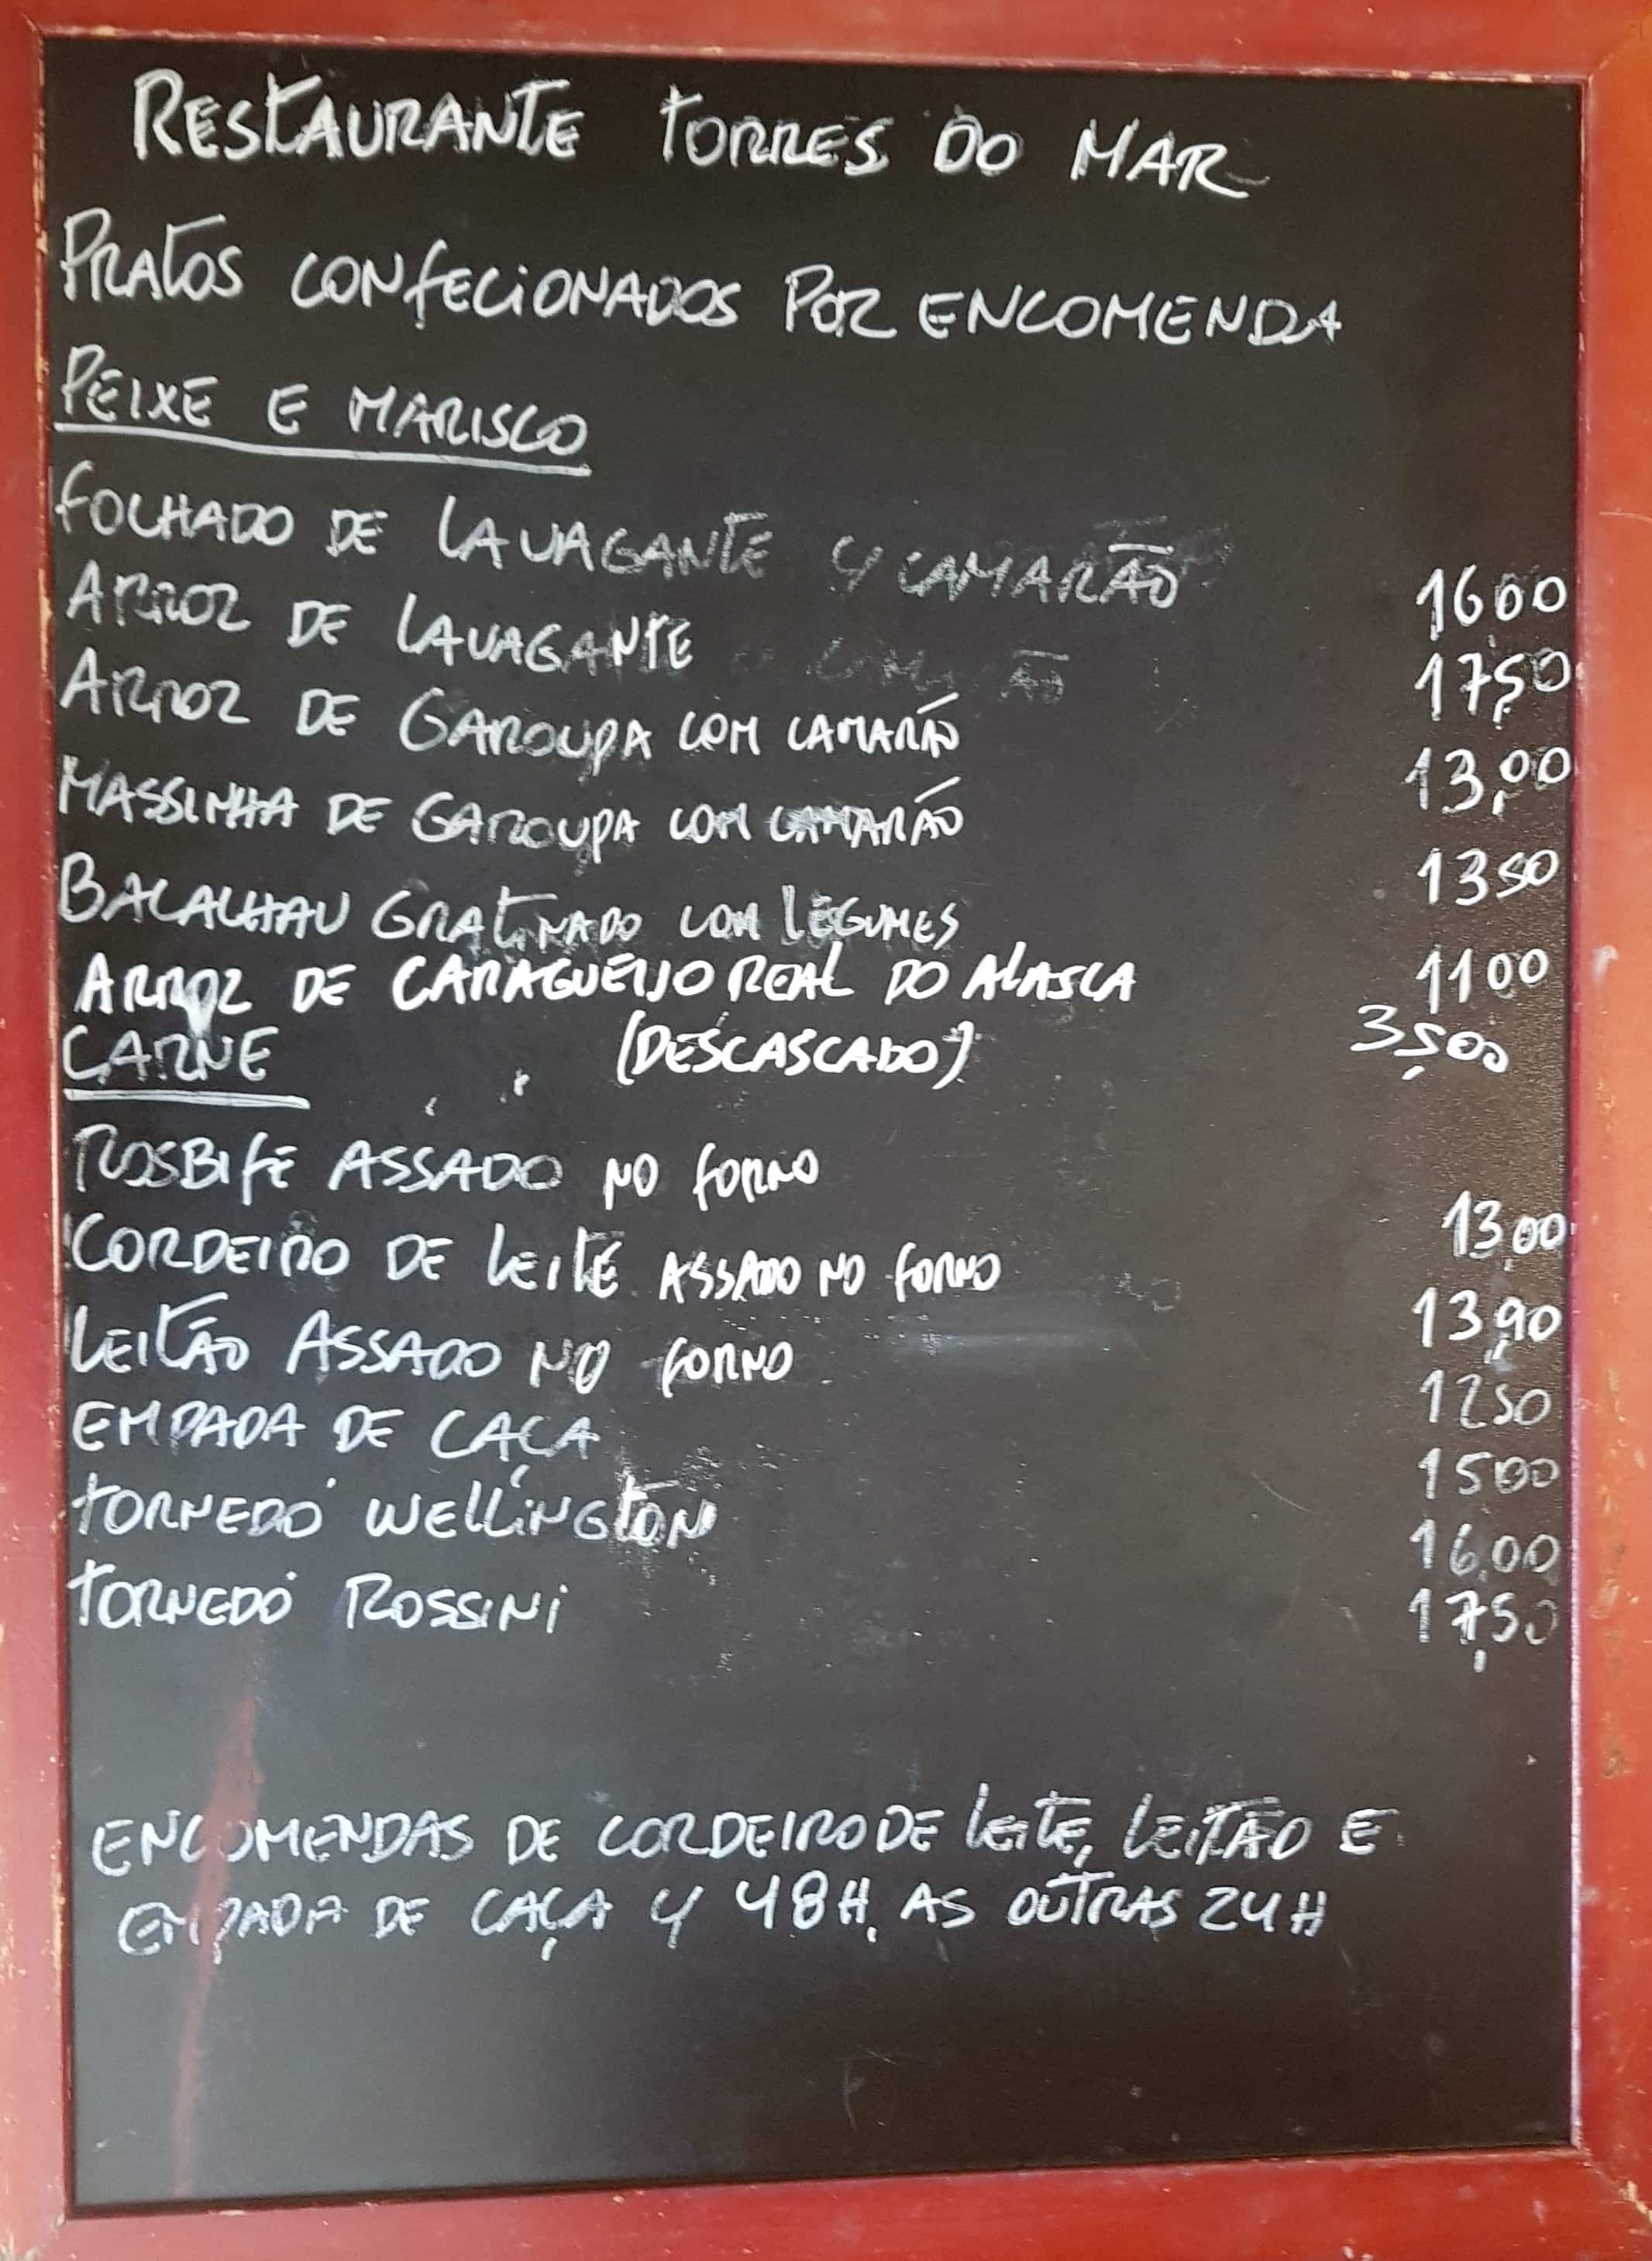 RESTAURANTE TORRES DO MAR
PRATOS CONFECIONADOS POR ENCOMENDA
PEIXE E MARISCO
FOLHADO DE LAVAGANTE Y CAMARÃO 16,00
ARROZ DE LAVAGANTE 17,50
ARROZ DE GAROUPA COM CAMARÃO 13,00
MASSINHA DE GAROUPA COM CAMARÃO 1350
BACALHAU GRATINADO COM LEGUMES 1100
ARROZ DE CARAGUEIJO REAL DO ALASCA 35,00
CARNE (DESCASCADO)
ROSBIFE ASSADO NO FORNO 13,00
CORDEIRO DE LEITE ASSADO NO FORNO 13,90
LEITÃO ASSADO NO FORNO 1250
EMPADA DE CAÇA 1500
TORNEDÓ WELLINGTON 16,00
TORNEDÓ ROSSINI 17,50
ENCOMENDAS DE CORDEIRO DE LEITE, LEITÃO E
EMPADA DE CAÇA Y 48H, AS OUTRAS 24H